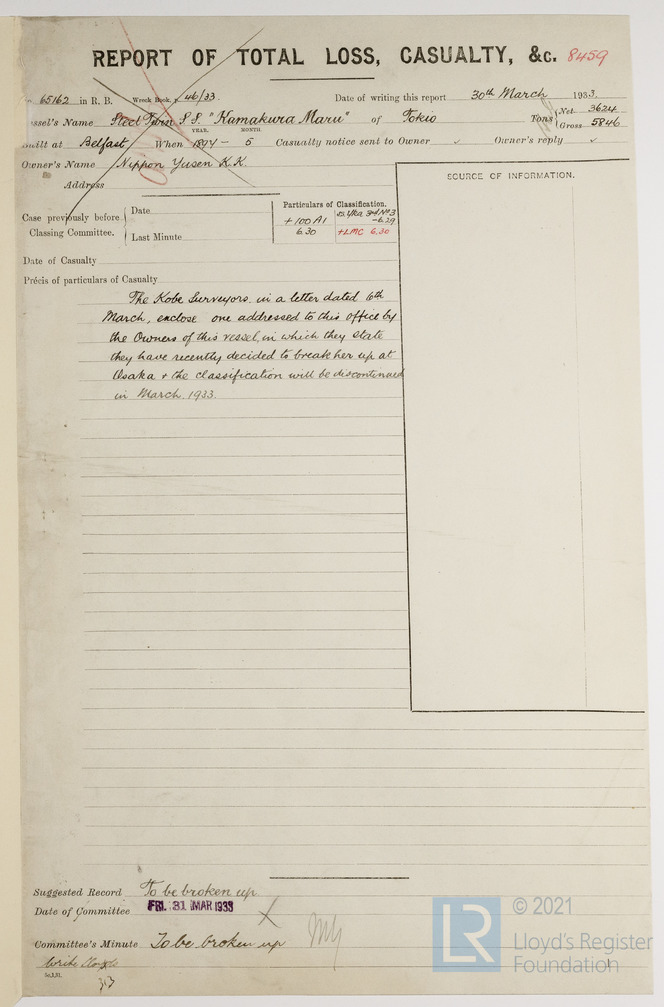 REPORT OF TOTAL LOSS, CASUALTY, &c. 8459
65162 in R. B. Wreck Book, p. 46/33. Date of writing this report 30th March 1933.
Vessel's Name Steel Twin S.S. "Kamakura Maru" of Tokio Tons { Net 3624
Gross 5846
Built at Belfast When YEAR. 1897 – MONTH. 5 Casualty notice sent to Owner ✓ Owner's reply ✓
Owner's Name Nippon Yusen K.K.
Address
SOURCE OF INFORMATION.
Case previously before Classing Committee. { Date
Last Minute
Particulars of Classification.
+100A1 SS. Yka 3rd No 3
6.30 –6.29
+LMC 6.30
Date of Casualty
Précis of particulars of Casualty
The Kobe Surveyors, in a letter dated 6th
March, enclose one addressed to this office by
the Owners of this vessel, in which they state
they have recently decided to break her up at
Osaka & the classification will be discontinued
in March, 1933.
Suggested Record To be broken up
Date of Committee FRI. 31 MAR 1933
Committee's Minute To be broken up
Write
© 2021
LR
Lloyd's Register
Foundation